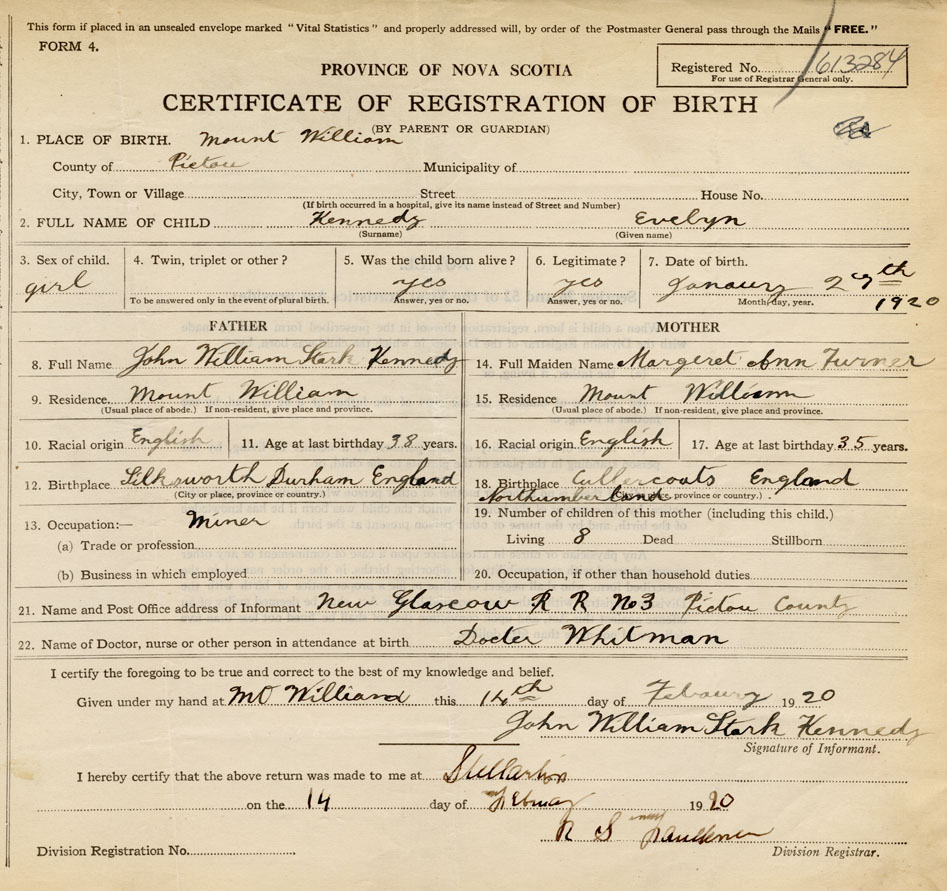 This form if placed in an unsealed envelope marked "Vital Statistics" and properly addressed will, by order of the Postmaster General pass through the Mails "FREE."
FORM 4.
Registered No. 613284
For use of Registrar General only.
PROVINCE OF NOVA SCOTIA
CERTIFICATE OF REGISTRATION OF BIRTH
(BY PARENT OR GUARDIAN)
1. PLACE OF BIRTH. Mount William
County of Pictou Municipality of
City, Town or Village Street House No.
(If birth occurred in a hospital, give its name instead of Street and Number)
2. FULL NAME OF CHILD Kennedy Evelyn
(Surname) (Given name)
3. Sex of child. 4. Twin, triplet or other? 5. Was the child born alive? 6. Legitimate? 7. Date of birth.
girl yes yes Janaury 29th
To be answered only in the event of plural birth. Answer, yes or no. Answer, yes or no. Month, day, year. 1920
FATHER MOTHER
8. Full Name John William Stark Kennedy 14. Full Maiden Name Margaret Ann Turner
9. Residence Mount William 15. Residence Mount William
(Usual place of abode.) If non-resident, give place and province. (Usual place of abode.) If non-resident, give place and province.
10. Racial origin English 11. Age at last birthday 38 years. 16. Racial origin English 17. Age at last birthday 35 years.
12. Birthplace Silksworth Durham England 18. Birthplace Cullercoats England
(City or place, province or country.) Northumberland (City or place, province or country.)
13. Occupation:— Miner 19. Number of children of this mother (including this child.)
(a) Trade or profession Living 8 Dead Stillborn
(b) Business in which employed 20. Occupation, if other than household duties
21. Name and Post Office address of Informant New Glascow R R No3 Pictou County
22. Name of Doctor, nurse or other person in attendance at birth Docter Whitman
I certify the foregoing to be true and correct to the best of my knowledge and belief.
Given under my hand at this 14th day of Febaury 1920
John William Stark Kennedy
Signature of Informant.
I hereby certify that the above return was made to me at Stellarton
on the 14 day of 1920
R S Faulkner
Division Registration No. Division Registrar.